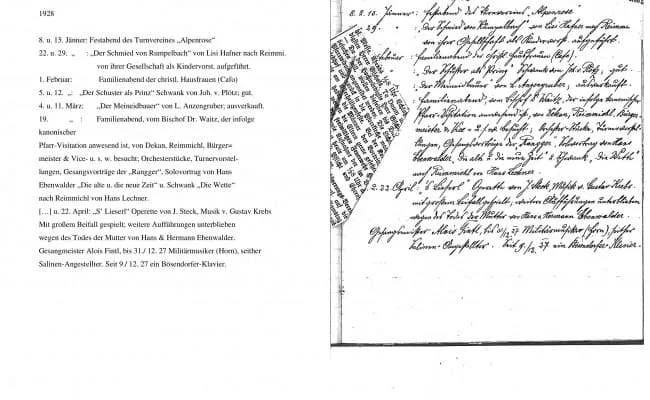 1928
8. u. 15. Jänner: Festabend des Turnvereines „Alpenrose“
22. u. 29. „ : „Der Schmied von Rumpelbach“ von Lisi Hafner nach Reimmi.
von ihrer Gesellschaft als Kindervorst. aufgeführt.
1. Februar: Familienabend der christl. Hausfrauen (Cafo)
5. u. 12. „: „Der Schuster als Prinz“ Schwank von Joh. v. Plötz; gut.
4. u. 11. März: „Der Meineidbauer“ von L. Anzengruber; ausverkauft.
19. „ : Familienabend, vom Bischof Dr. Waitz, der infolge
kanonischer
Pfarr-Visitation anwesend ist, von Dekan, Reimmichl, Bürger=
meister & Vice- u. s. w. besucht; Orchesterstücke, Turnervorstel-
lungen, Gesangsvorträge der „Rangger“, Solovortrag von Hans
Ebenwalder „Die alte u. die neue Zeit“ u. Schwank „Die Wette“
nach Reimmichl von Hans Lechner.
[…] u. 22. April: „S‘ Lieserl“ Operette von J. Steck, Musik v. Gustav Krebs
Mit großem Beifall gespielt; weitere Aufführungen unterblieben
wegen des Todes der Mutter von Hans & Hermann Ebenwalder.
Gesangmeister Alois Fintl, bis 31./ 12. 27 Militärmusiker (Horn), seither
Salinen-Angestellter. Seit 9./ 12. 27 ein Bösendorfer-Klavier.
8. u. 15. Jänner: Festabend des „Alpenrose“
29. „ : „Der Schmied von Rumpelbach“ von Lisi Hafner nach Reimmi.
von ihrer Gesellschaft als Kindervorst. aufgeführt.
Februar: Familienabend der christl. Hausfrauen (Cafo).
„Der Schuster als Prinz“ Schwank von Joh. v. Plötz; gut.
„Der Meineidbauer“ von L. Anzengruber, ausverkauft.
Familienabend, vom Bischof Dr. Waitz, der infolge kanonischer
Pfarr-Visitation anwesend ist, von Dekan, Reimmichl, Bürger=
meister & Vice- u. s. w. besucht;
lungen, Gesangsvorträge der „Rangger“, Solovortrag von Hans
Ebenwalder „Die alte u. die neue Zeit“ u. Schwank, „Die Wette“
nach Reimmichl von Hans Lechner.
u. 22. April „S' Lieserl“ Operette von J. Steck, Musik v. Gustav Krebs
mit großem Beifall gespielt, weitere Aufführungen unterblieben
wegen des Todes der Mutter von Hans & Hermann Ebenwalder.
Alois Fintl, bis 31./12. 27 Militärmusiker (Horn), seither
Salinen-Angestellter. Seit 9./12. 27 ein Bösendorfer-Klavier.